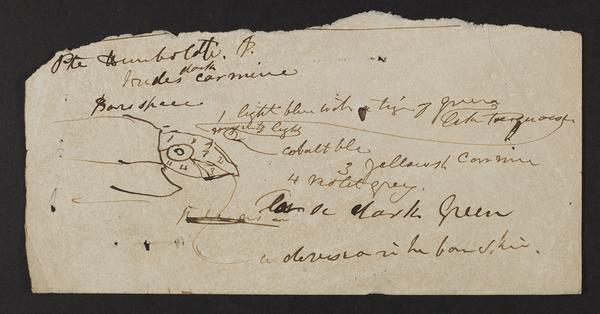 Pte Humboldti. P.
Irides dark carmine
Bare space
1 light blue with a tinge of green
like Turquoise
2 light
cobalt blue
3 Yellowish Carmine
4 violet grey.
dark green
a division in the bare skin.
1 2 3 4 4